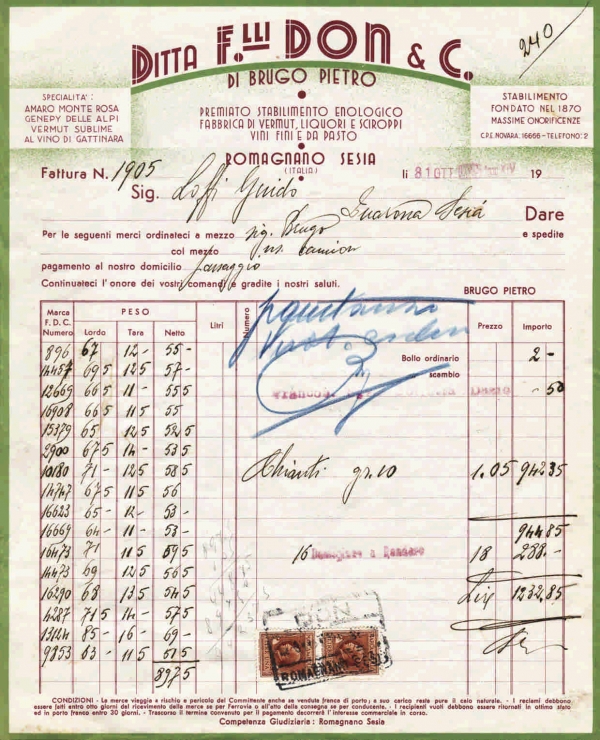 240
DITTA F.LLI DON & C.
DI BRUGO PIETRO
SPECIALITA':
AMARO MONTE ROSA
GENEPY DELLE ALPI
VERMUT SUBLIME
AL VINO DI GATTINARA
PREMIATO STABILIMENTO ENOLOGICO
FABBRICA DI VERMUT, LIQUORI E SCIROPPI
VINI FINI E DA PASTO
ROMAGNANO SESIA
(ITALIA)
STABILIMENTO
FONDATO NEL 1870
MASSIME ONORIFICENZE
C.P.E. NOVARA. 16666 - TELEFONO: 2
Fattura N. 1905
li 31 OTT 19
Sig. Loffi Guido
Dare
Per le seguenti merci ordinateci a mezzo sig. Brugo
e spedite
col mezzo camion
pagamento al nostro domicilio
Continuateci l'onore dei vostri comandi e gradite i nostri saluti.
BRUGO PIETRO
Marca F.D.C. Numero PESO Lordo Tara Netto Litri Numero Prezzo Importo
Bollo ordinario 2 -
scambio - 50
896 67 12 - 55 -
14457 69 5 12 5 57 -
12669 66 5 11 - 55 5
16908 66 5 11 5 55
15379 65 12 5 52 5
2900 67 5 14 - 53 5
10180 71 - 12 5 58 5
Chianti gr. 10 1.05 942.35
14747 67 5 11 5 56
16623 65 - 12 - 53 -
16669 64 - 11 - 53 -
944.85
16473 71 11 5 59 5
16 Damigiane a Rendere 18 288.-
14473 69 12 5 56 5
16290 68 13 5 54 5
Lire 1232.85
14287 71 5 14 - 57 5
13124 85 - 16 - 69 -
9853 63 - 11 5 51 5
897 5
DON
ROMAGNANO SESIA
CONDIZIONI - Le merce viaggia a rischio e pericolo del Committente anche se venduta franca di porto; a suo carico resta pure il calo naturale. - I reclami debbono
essere fatti entro otto giorni del ricevimento della merce se per Ferrovia o all'atto della consegna se per conducente. - I recipienti vuoti debbono essere ritornati in ottimo stato
ed in porto franco entro 30 giorni. - Trascorso il termine convenuto per il pagamento decorrerà l'interesse commerciale in corso.
Competenza Giudiziaria: Romagnano Sesia